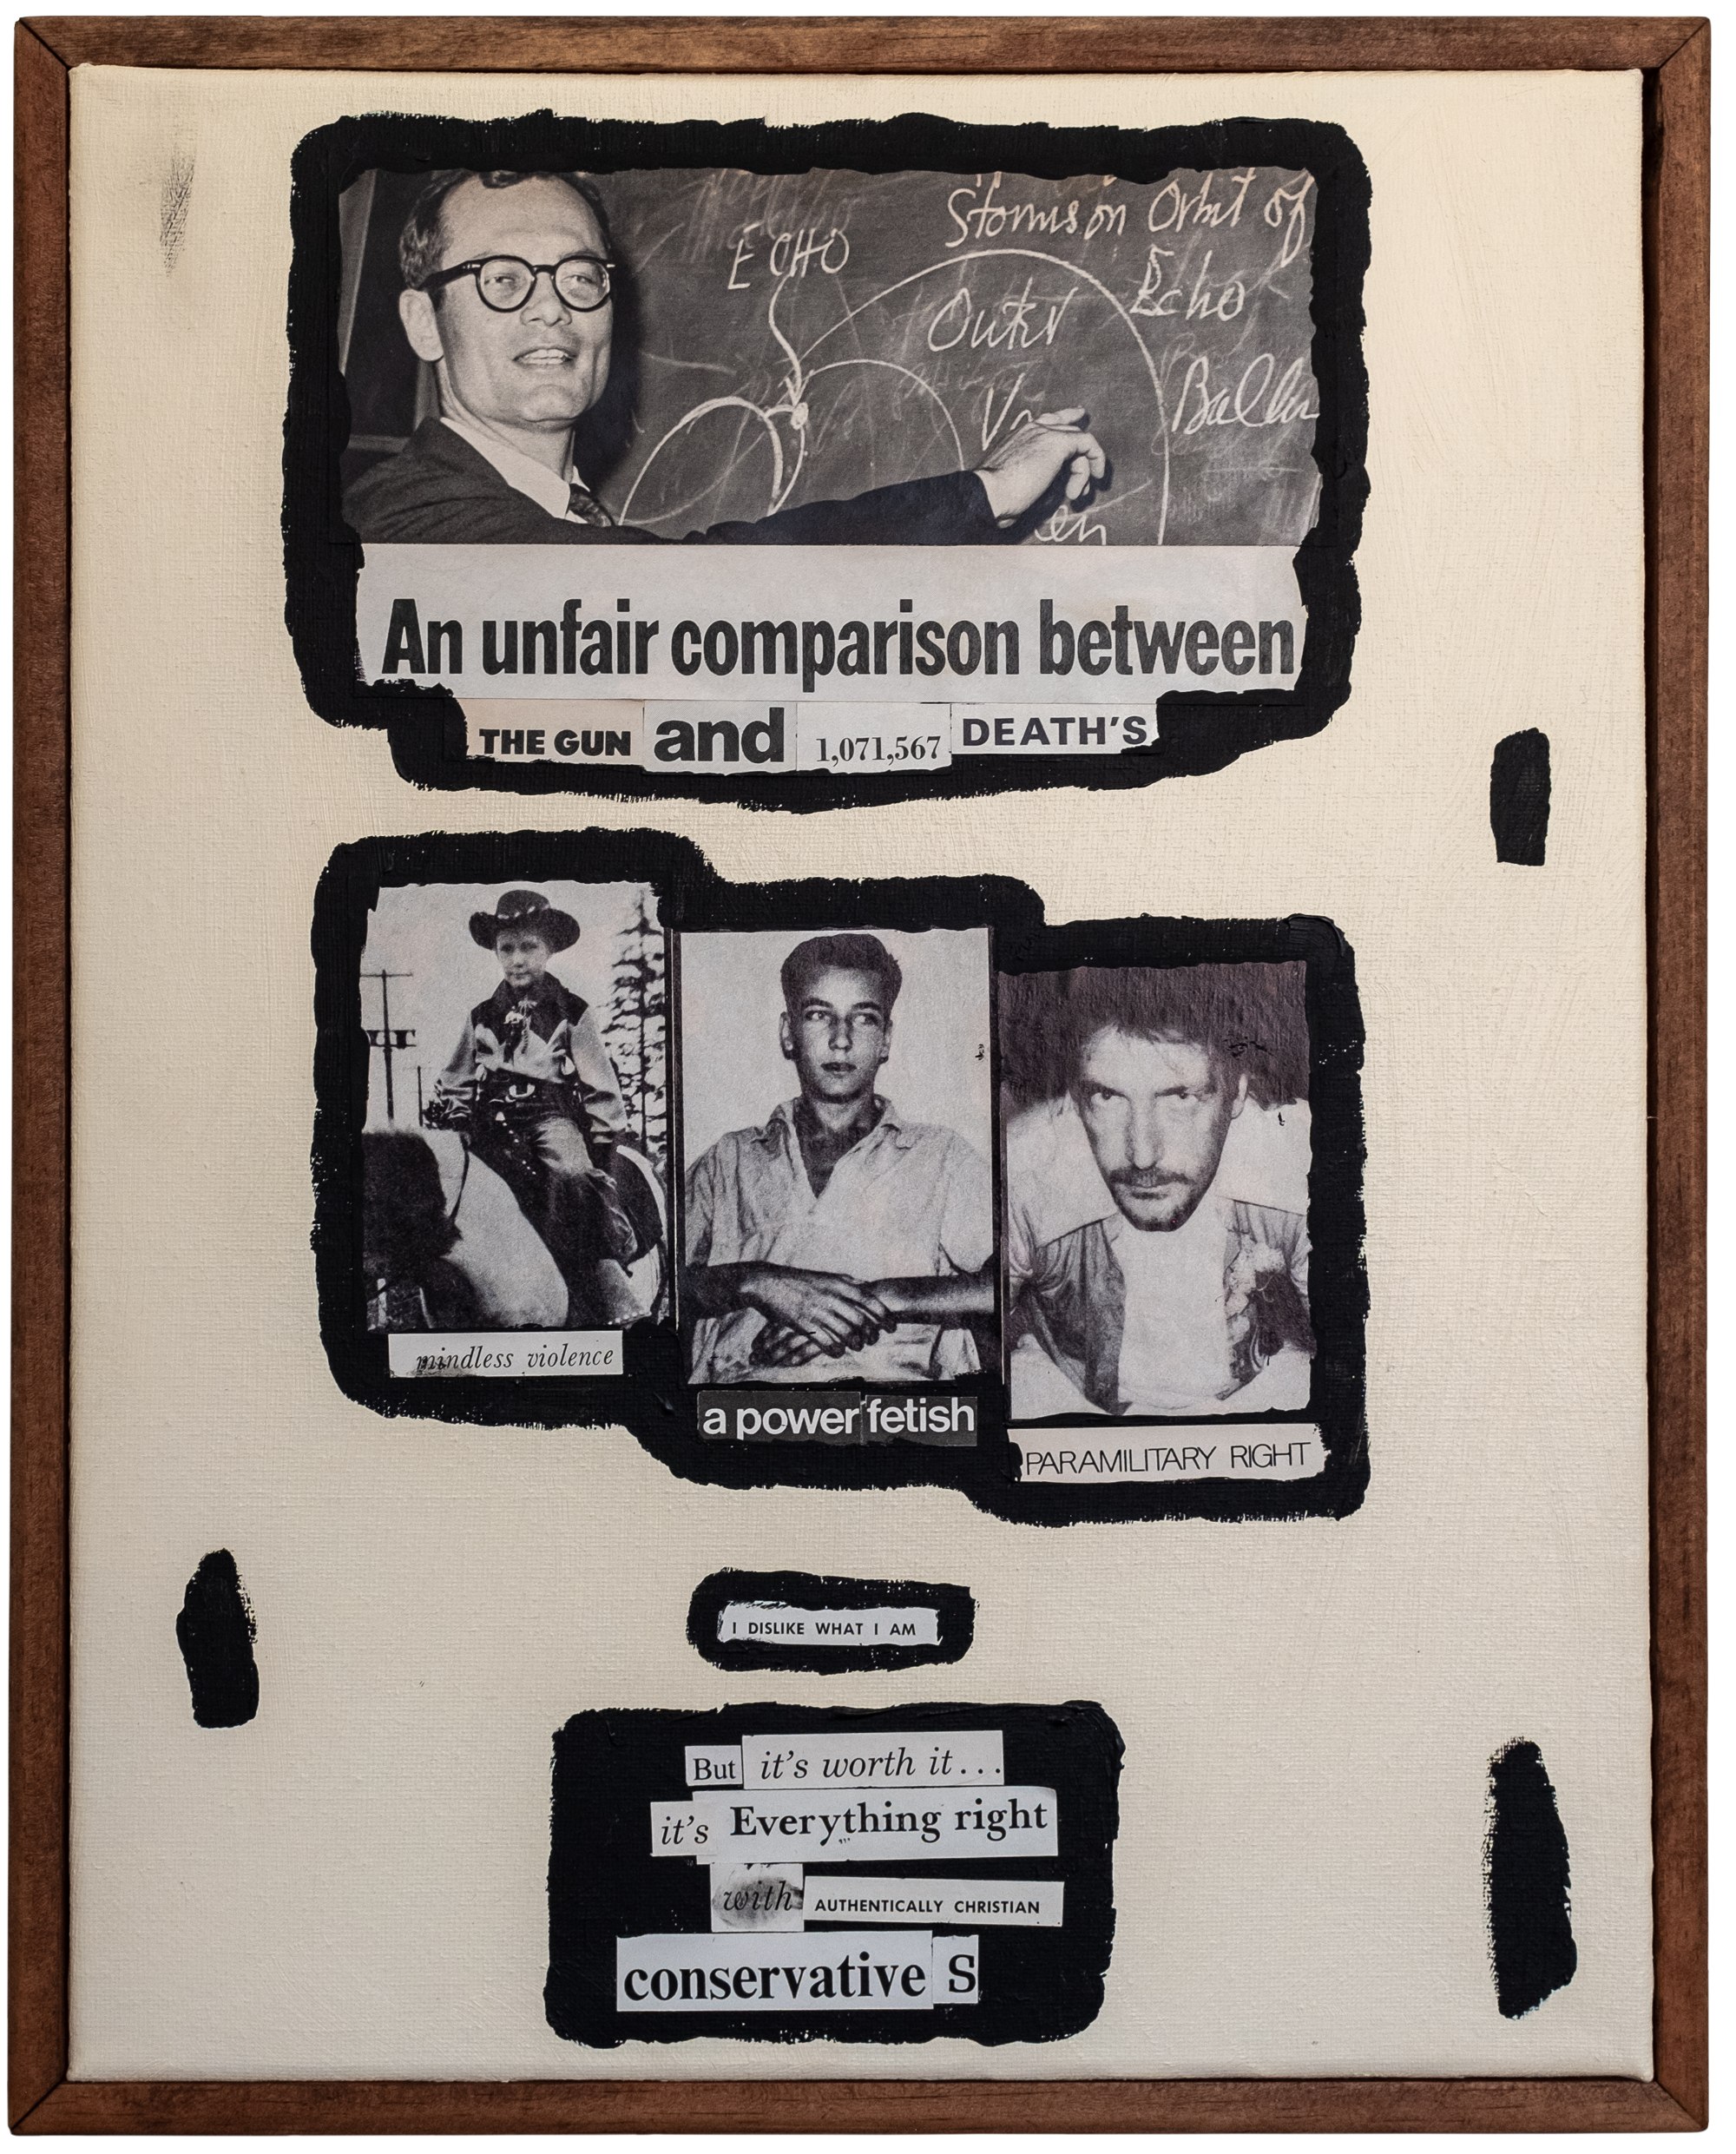 Storms on Orbit of
ECHO
Echo
Outer
V
Ballo
en
An unfair comparison between
THE GUN and 1,071,567 DEATH'S
mindless violence
a power fetish
PARAMILITARY RIGHT
I DISLIKE WHAT I AM
But it's worth it...
it's Everything right
with AUTHENTICALLY CHRISTIAN
conservative S